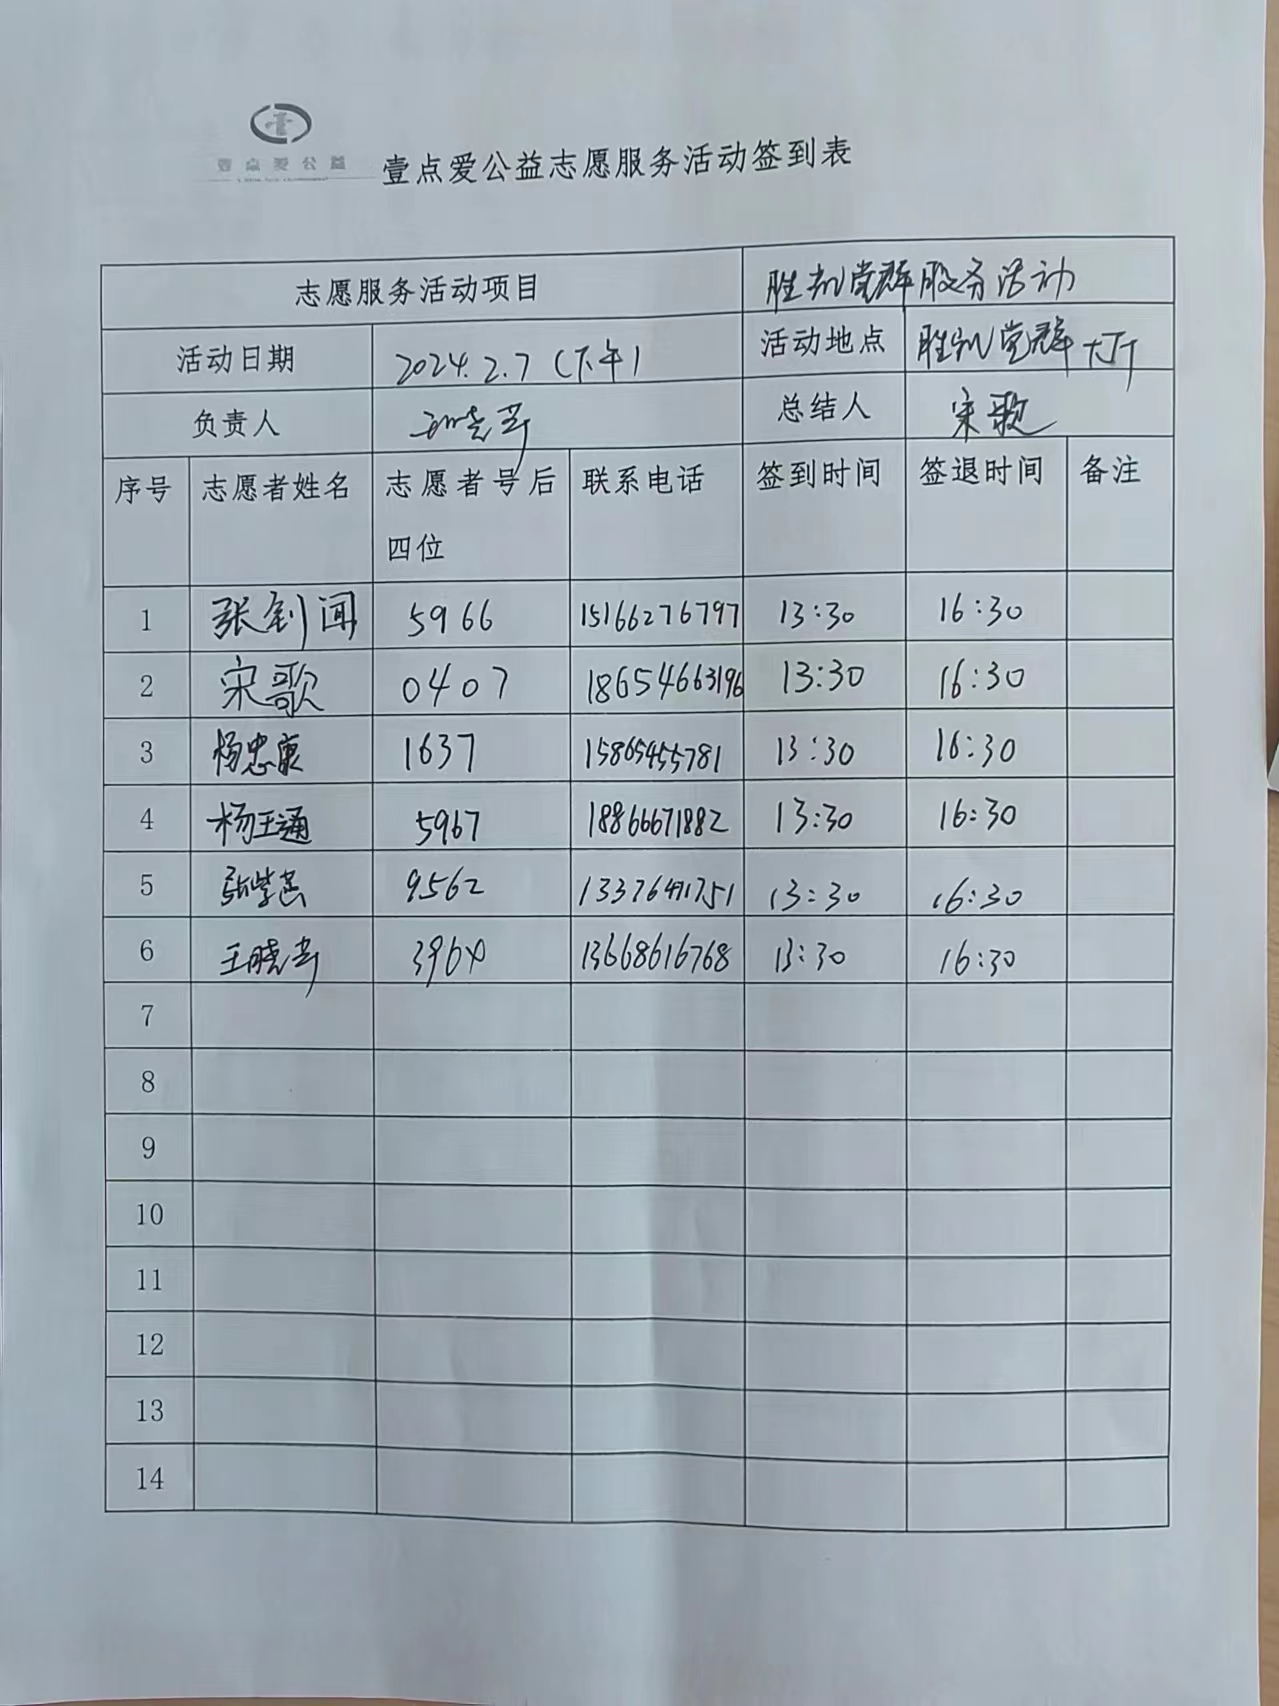 壹点爱公益
壹点爱公益志愿服务活动签到表
志愿服务活动项目 胜利党群服务活动
活动日期 2024.2.7(下午) 活动地点 胜利党群大厅
负责人 总结人 宋歌
序号 志愿者姓名 志愿者号后四位 联系电话 签到时间 签退时间 备注
1 张钊闻 5966 15166276797 13:30 16:30
2 宋歌 0407 18654663196 13:30 16:30
3 杨忠康 1637 15865455781 13:30 16:30
4 杨玉通 5967 18866671882 13:30 16:30
5 9562 13:30 16:30
6 王晓芳 396X 13668616768 13:30 16:30
7
8
9
10
11
12
13
14